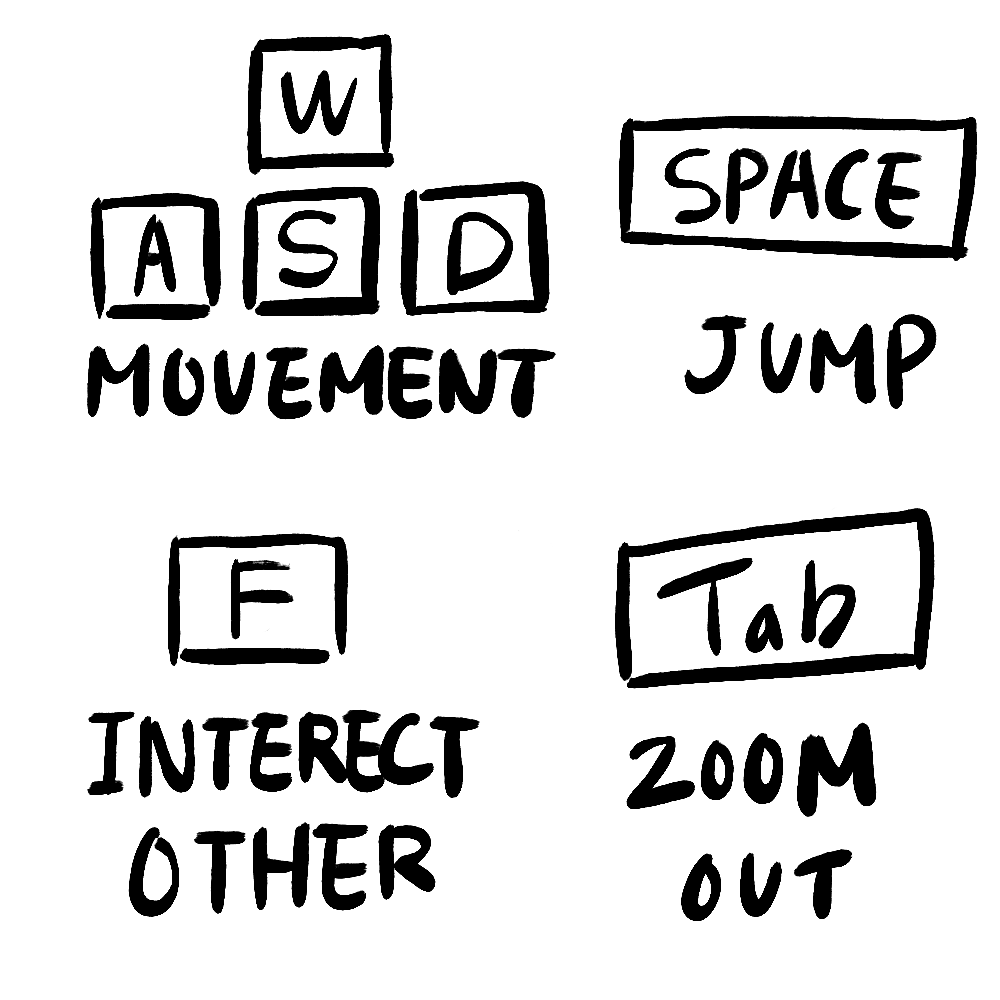 W
A S D
MOVEMENT
SPACE
JUMP
F
INTERECT
OTHER
Tab
ZOOM
OUT